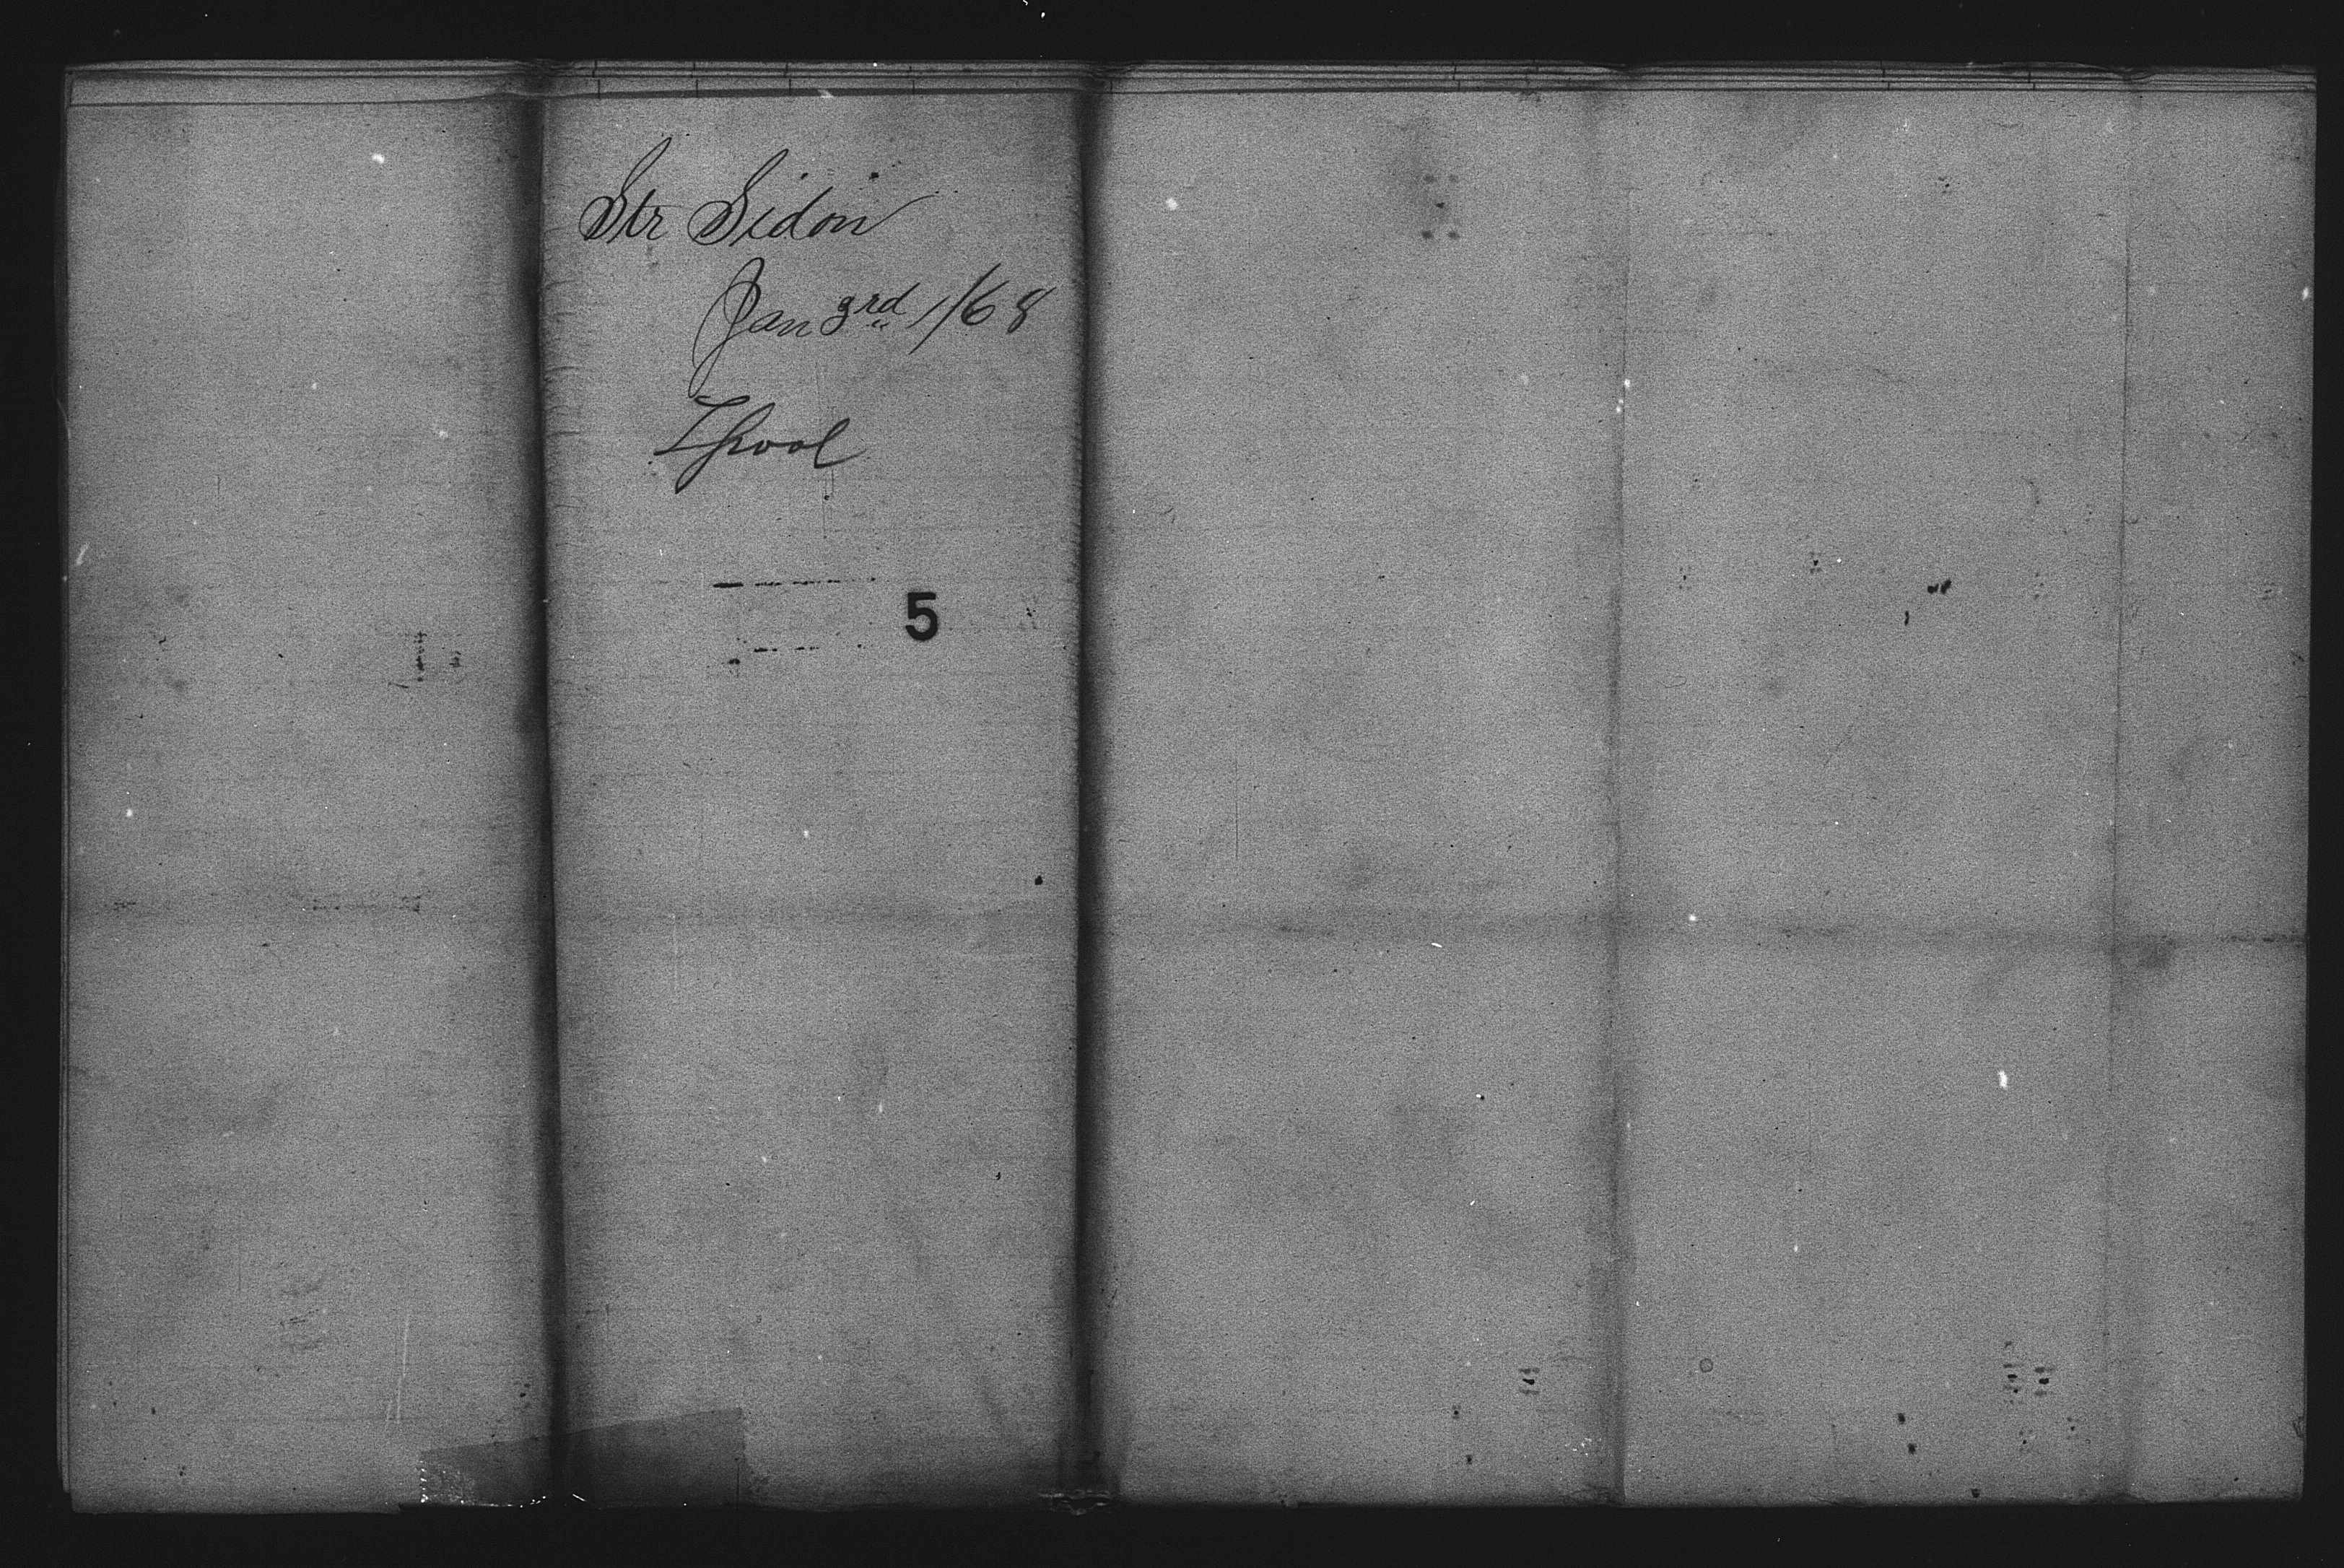 Str Sidon
Jan 3rd /68
Lpool
5